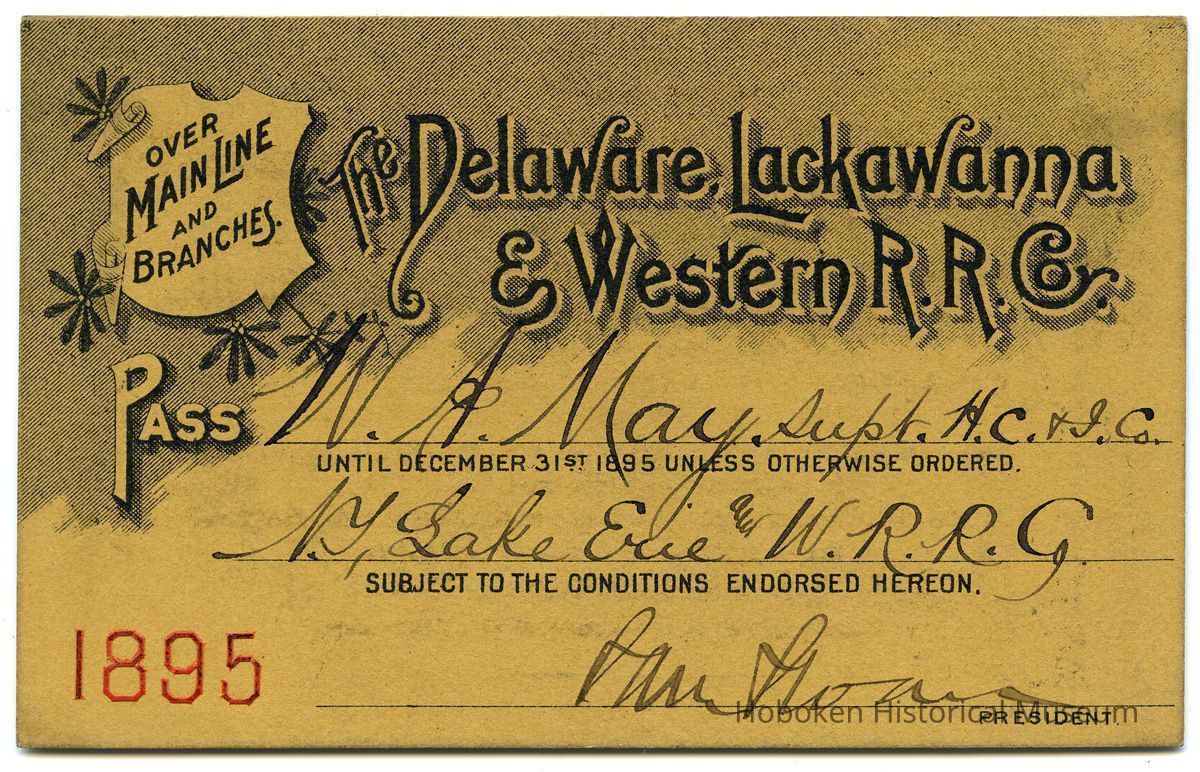 OVER
MAIN LINE
AND
BRANCHES.
The Delaware, Lackawanna
& Western R. R. Co.
PASS W. A. May. Supt. H. C. & I. Co.
UNTIL DECEMBER 31ST 1895 UNLESS OTHERWISE ORDERED.
N.Y, Lake Erie & W. R. R. Co.
SUBJECT TO THE CONDITIONS ENDORSED HEREON.
1895
Sam Sloan
PRESIDENT.
Hoboken Historical Museum